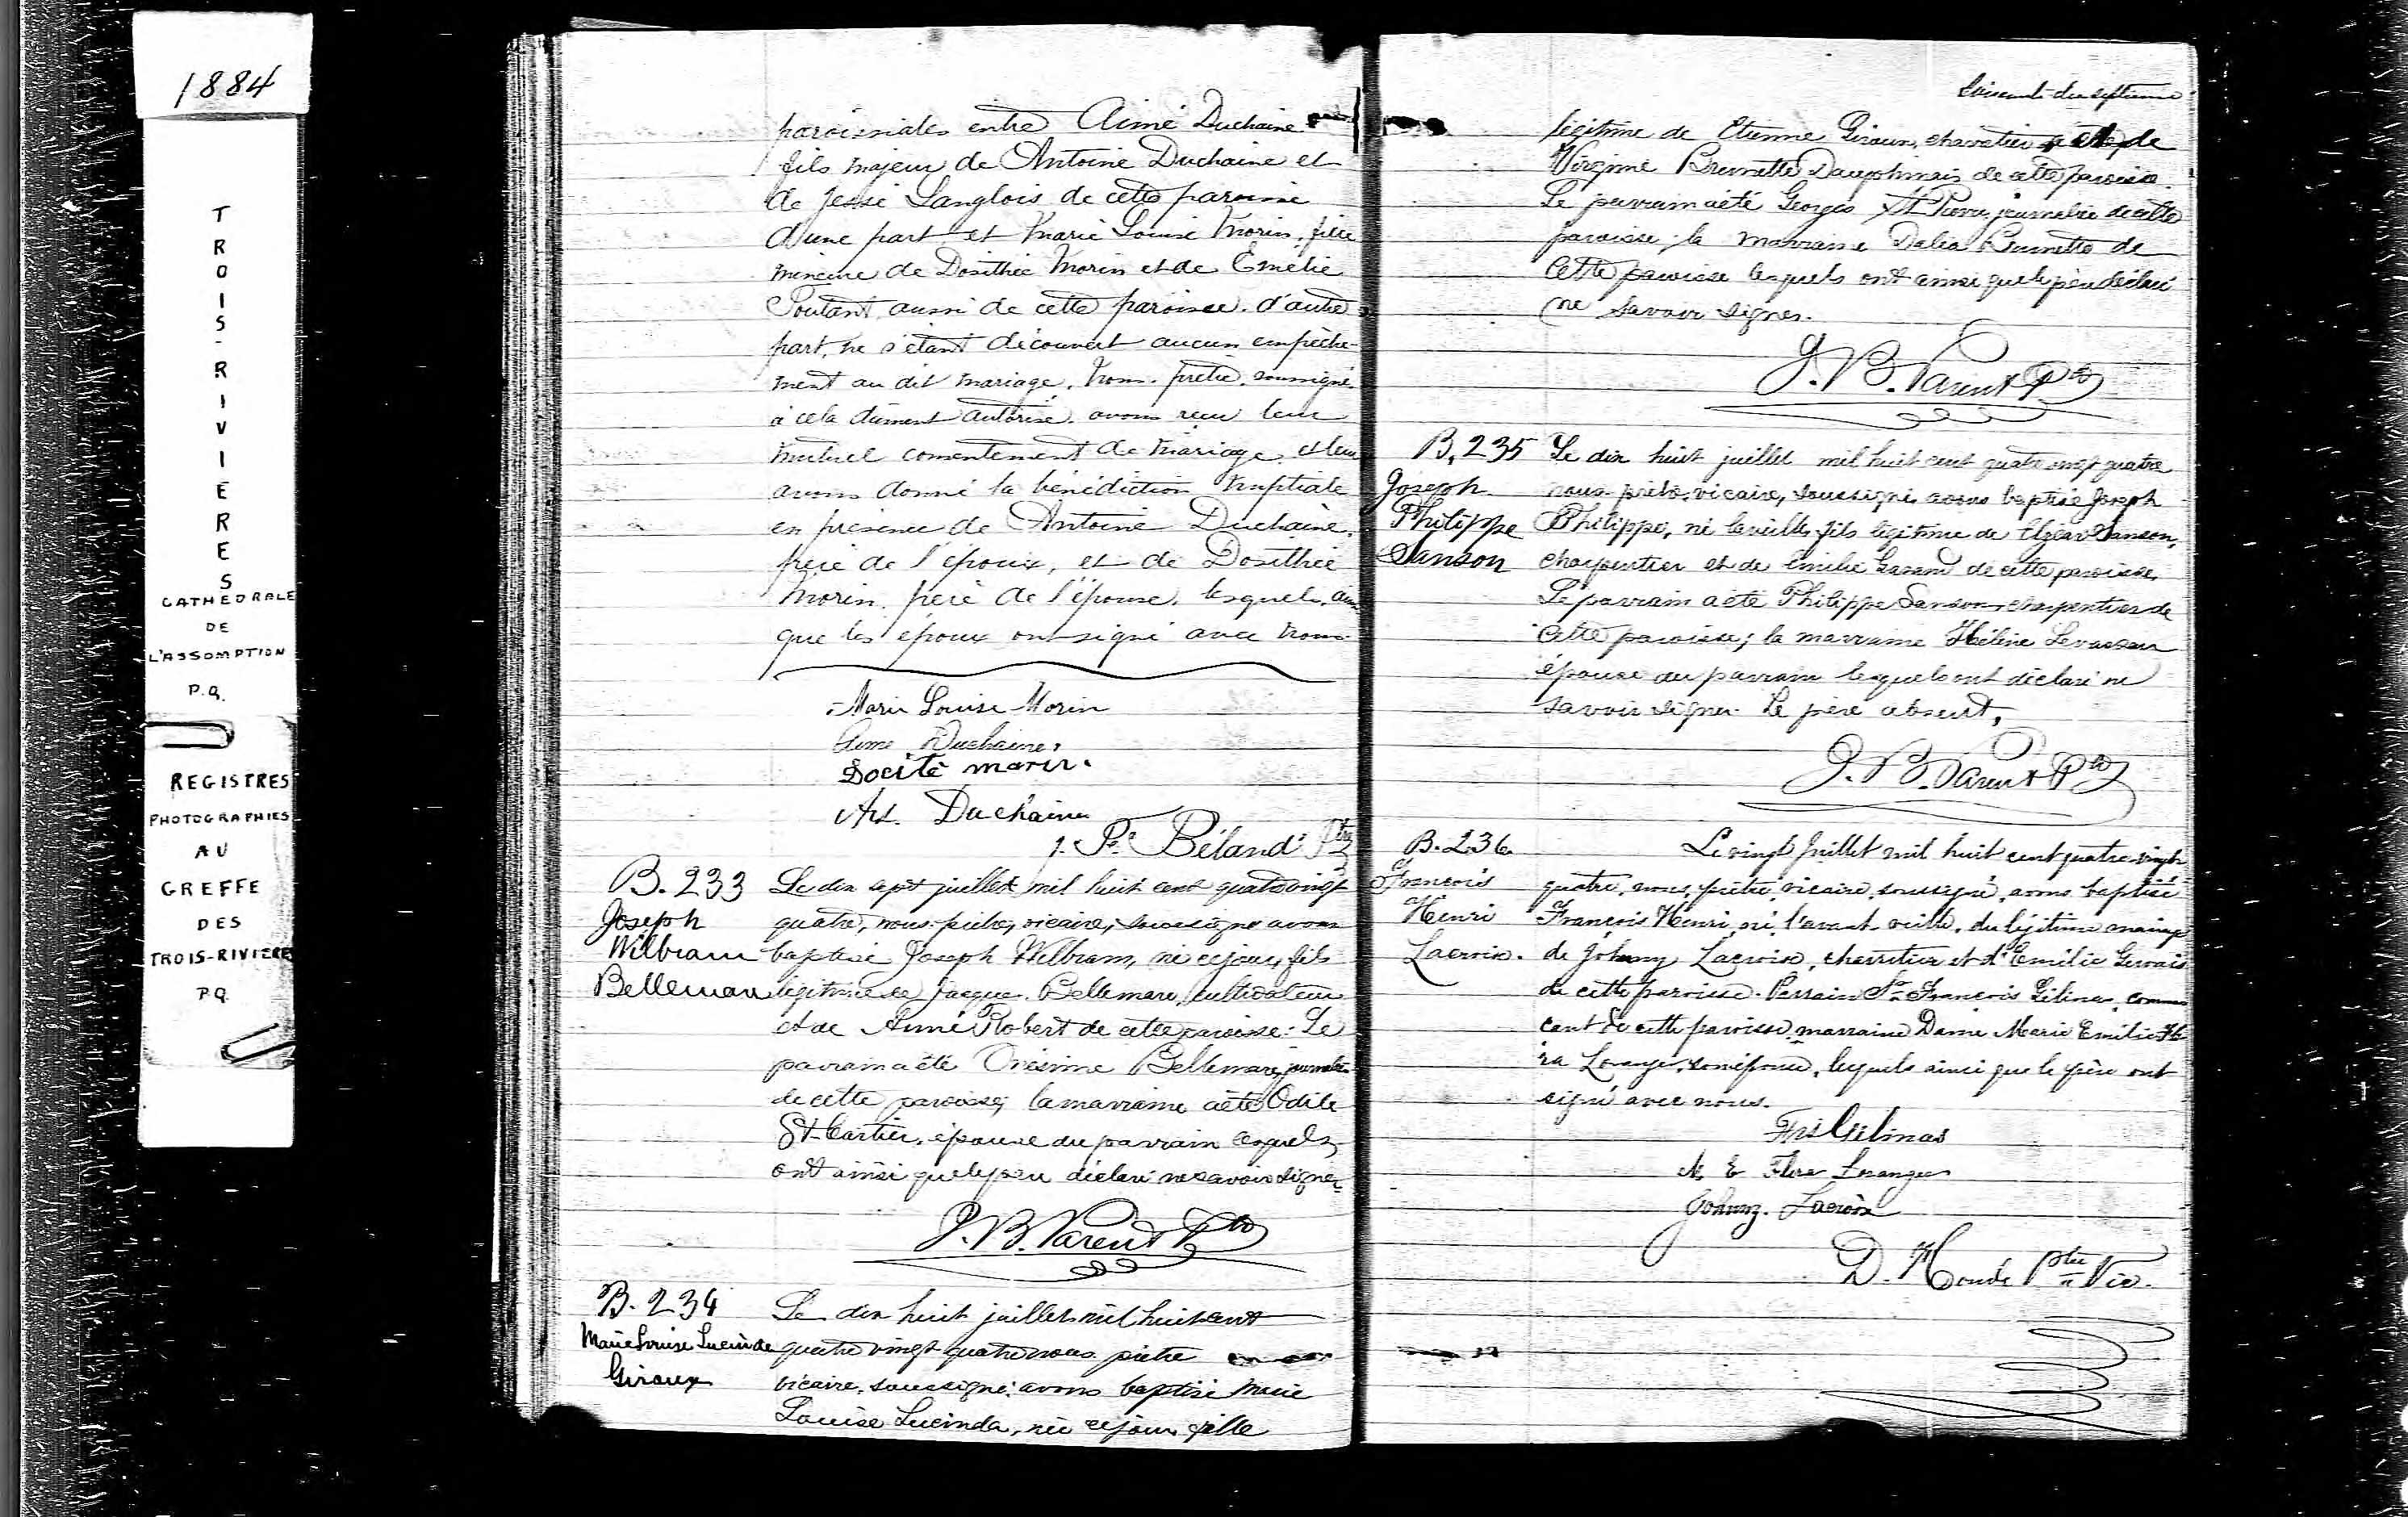 1884
TROIS-RIVIERES
CATHEDRALE
DE
L'ASSOMPTION
P.Q.
REGISTRES
PHOTOGRAPHIES
AU
GREFFE
DES
TROIS-RIVIERE
P.Q.
paroissiales entre Aimé Duchaine
fils majeur de Antoine Duchaine et
de Jessé Langlois de cette paroisse
d'une part et Marie Louise Morin, fille
mineure de Dosithée Morin et de Emélie
aussi de cette paroisse. d'autre
part, ne s'étant découvert aucun empêche-
ment au dit mariage, Nous. prêtre. soussigné
à cela dûment autorisé. avons reçu leur
mutuel consentement de mariage et leur
avons donné la bénédiction nuptiale
en présence de Antoine Duchaine,
père de l'époux, et de Dosithée
Morin. père de l'épouse. lesquels,
que les époux ont signé avec nous.
Marie Louise Morin
Aime Duchaine,
Docité morin.
Ant. Duchaine
J. P. Béland Ptre
B. 233 Le dix sept juillet mil huit cent quatre vingt
Joseph quatre, nous prêtre, vicaire, soussigné avons
Wilbram baptisé Joseph Wilbram, né ce jour, fils
Bellemare légitime de Jacques Bellemare, cultivateur
et de Aimé Robert de cette paroisse. Le
parrain a été Onésime Bellemare, journalier
de cette paroisse; la marraine a été Odile
St-Cartier, épouse du parrain lesquels,
ont ainsi que le père déclaré ne savoir signer
J. B. Parent Ptre
B. 234 Le dix huit juillet mil huit cent
Marie Louise Lucinda quatre vingt quatre nous prêtre
Giroux vicaire, soussigné avons baptisé Marie
Louise Lucinda, née ce jour, fille
Soixante dix septième
légitime de Etienne Giroux, charretier et de
Virginie Brunette Dauphinais de cette paroisse.
Le parrain a été Georges St Pierre, journalier de cette
paroisse; la marraine Dalia Brunette de
cette paroisse lesquels ont ainsi que le père déclaré
ne savoir signer.
J. B. Parent Ptre
B. 235 Le dix huit juillet mil huit cent quatre vingt quatre
Joseph nous prêtre, vicaire, soussigné avons baptisé Joseph
Philippe Philippe, né la veille, fils légitime de Elzéar Sanson,
Sanson charpentier et de Emilie de cette paroisse,
Le parrain a été Philippe Sanson, charpentier de
cette paroisse; la marraine Hélène Levasseur
épouse du parrain lesquels ont déclaré ne
savoir signer. Le père absent,
J. B. Parent Ptre
B. 236 Le vingt Juillet mil huit cent quatre vingt
François quatre, nous, prêtre, vicaire, soussigné, avons baptisé
Henri François Henri, né l'avant veille, du légitime mariage
Lacroix. de Johnny Lacroix, charretier et d'Emilie Gervais
de cette paroisse. Parrain Sr François Gélinas, commer
cant de cette paroisse, marraine Dame Marie Emilie Flo
ra Loranger, son épouse, lesquels ainsi que le père ont
signé avec nous.
Frs Gelinas
M. E Flora Loranger
Johnny. Lacroix
D. Houde Ptre Vic.